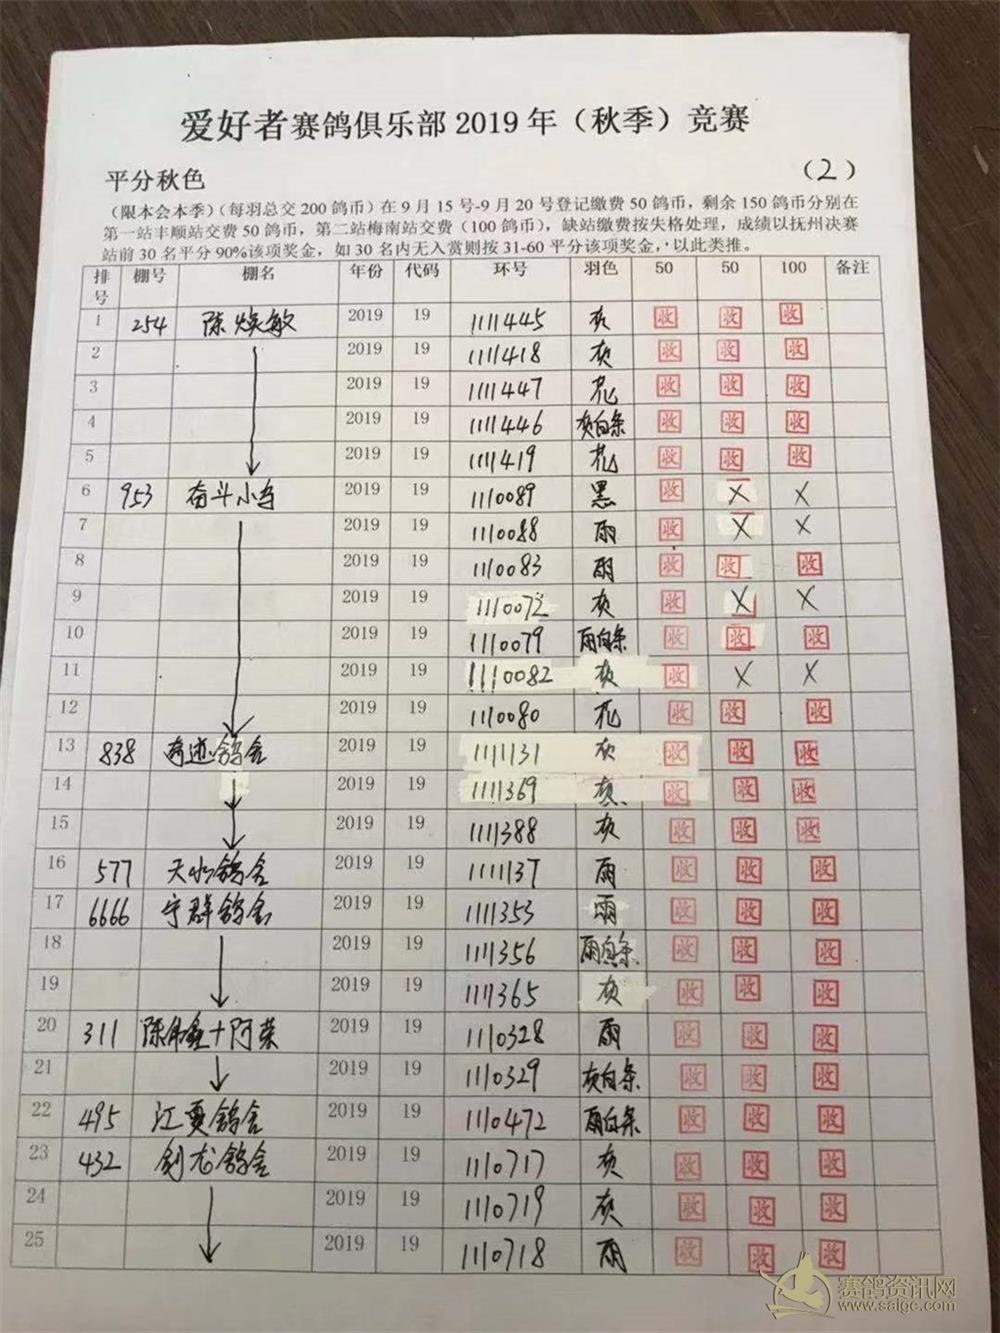 爱好者赛鸽俱乐部 2019 年（秋季）竞赛
平分秋色 （2）
（限本会本季）（每羽总交 200 鸽币）在 9 月 15 号-9 月 20 号登记缴费 50 鸽币，剩余 150 鸽币分别在
第一站丰顺站交费 50 鸽币，第二站梅南站交费（100 鸽币），缺站缴费按失格处理，成绩以抚州决赛
站前 30 名平分 90%该项奖金，如 30 名内无入赏则按 31-60 平分该项奖金，以此类推。
排号 棚号 棚名 年份 代码 环号 羽色 50 50 100 备注
1 254 陈焕敏 2019 19 1111445 灰 收 收 收
2 2019 19 1111418 灰 收 收 收
3 2019 19 1111447 花 收 收 收
4 2019 19 1111446 灰白条 收 收 收
5 2019 19 1111419 花 收 收 收
6 953 奋斗小 2019 19 1110089 黑 收 X X
7 2019 19 1110088 雨 收 X X
8 2019 19 1110083 雨 收 收 收
9 2019 19 1110072 灰 收 X X
10 2019 19 1110079 雨白条 收 收 收
11 2019 19 1110082 灰 收 X X
12 2019 19 1110080 花 收 收 收
13 838 奇迹鸽舍 2019 19 1111131 灰 收 收 收
14 2019 19 1111369 灰 收 收 收
15 2019 19 1111388 灰 收 收 收
16 577 天水鸽舍 2019 19 1111137 雨 收 收 收
17 6666 宁群鸽舍 2019 19 1111353 雨 收 收 收
18 2019 19 1111356 雨白条 收 收 收
19 2019 19 1111365 灰 收 收 收
20 311 陈伟鑫+阿荣 2019 19 1110328 雨 收 收 收
21 2019 19 1110329 灰白条 收 收 收
22 495 江夏鸽舍 2019 19 1110472 雨白条 收 收 收
23 432 剑龙鸽舍 2019 19 1110717 灰 收 收 收
24 2019 19 1110719 灰 收 收 收
25 2019 19 1110718 雨 收 收 收
赛鸽资讯网
www.saigc.com